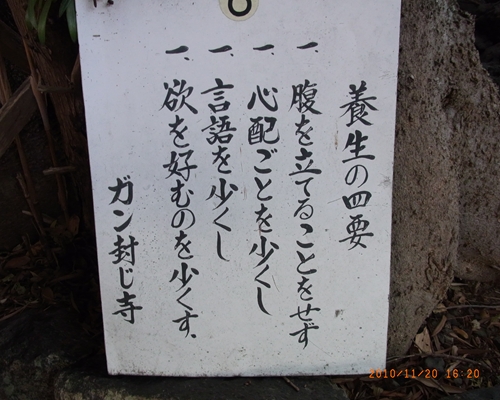 養生の四要
一、腹を立てることをせず
一、心配ごとを少くし
一、言語を少くし
一、欲を好むのを少くす、
ガン封じ寺
2010/11/20 16:20